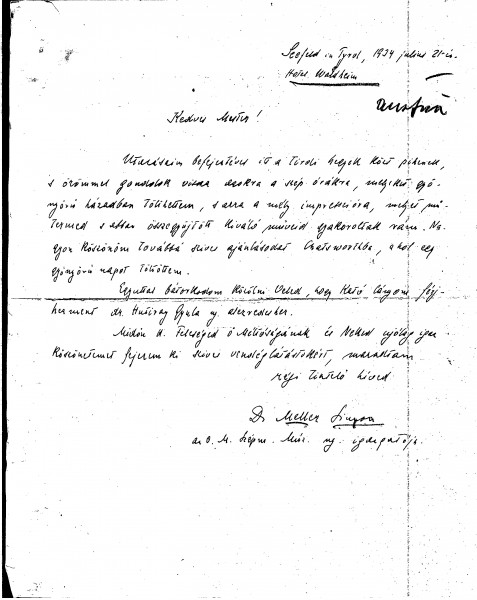 Seefeld in Tyrol, 1934 július 21-én.
Hotel Waldheim
Austria
Kedves Mester!
Utazásaim befejeztével itt a Tiroli hegyek közt pihenek,
s örömmel gondolok vissza azokra a szép órákra, melyeket gyö-
nyörű házadban töltöttem, s arra a mély impresszióra, melyet mű-
termed s abban összegyűjtött kiváló műveid gyakoroltak rám. Na-
gyon köszönöm továbbá szíves ajánlásodat Chatsworthba, ahol egy
gyönyörű napot töltöttem.
Egyúttal bátorkodom közölni Veled, hogy Kató lányom férj-
hezment dr. Gyula ny. ezredeshez.
Midőn k. Feleséged ő Méltóságának és Neked újólag igaz
köszönetemet fejezem ki szíves vendéglátástokért, maradtam
régi tisztelő híved
Dr Meller Simon
az O. M. Szépm. Múz. ny. igazgatója.